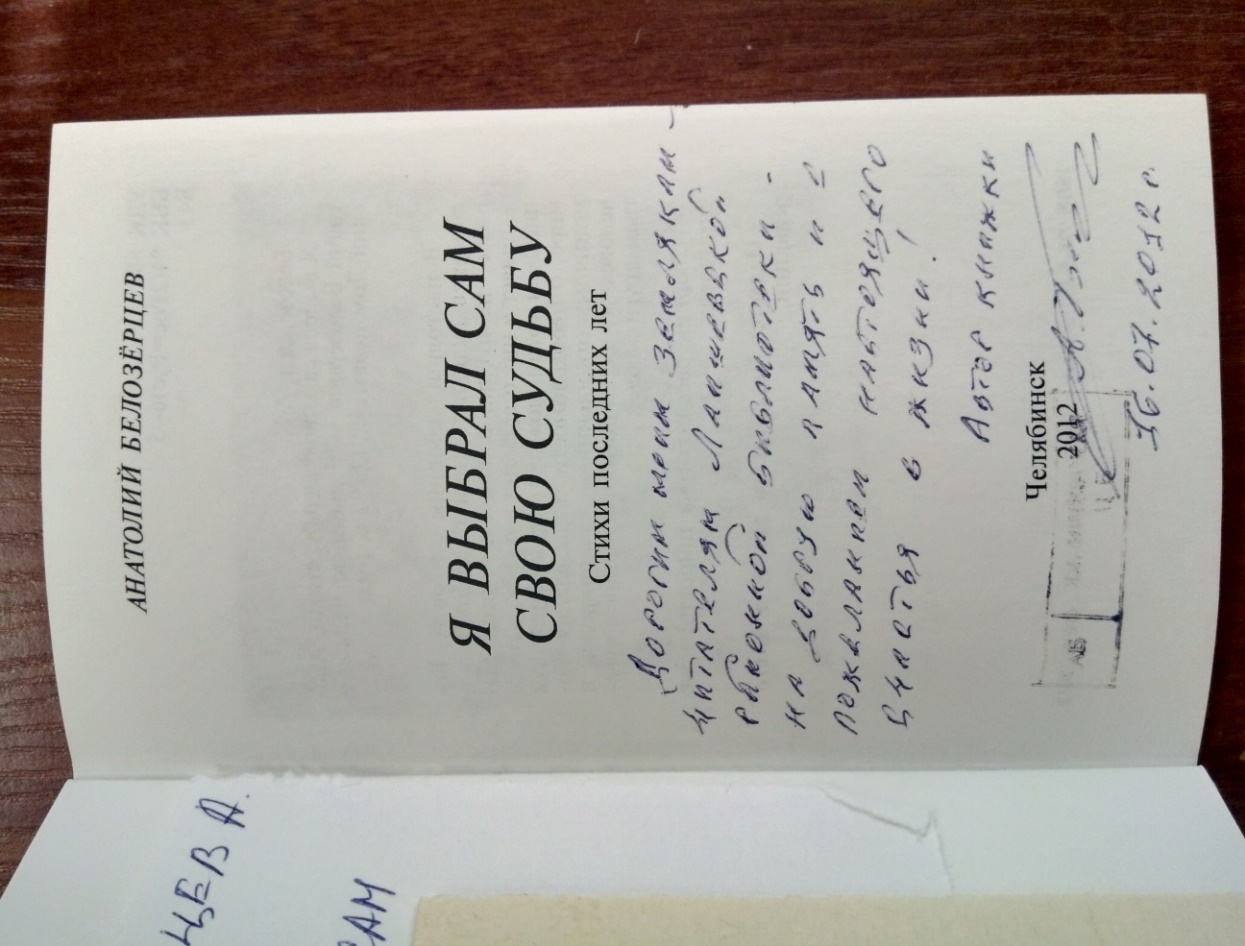 АНАТОЛИЙ БЕЛОЗЁРЦЕВ
Я ВЫБРАЛ САМ
СВОЮ СУДЬБУ
Стихи последних лет
Дорогим моим землякам –
читателям Лаишевской
районной библиотеки -
на добрую память и с
пожеланием настоящего
счастья в жизни!
Автор книжки
Челябинск
2012
16.07.2012 г.
ЦЕВ А.
САМ